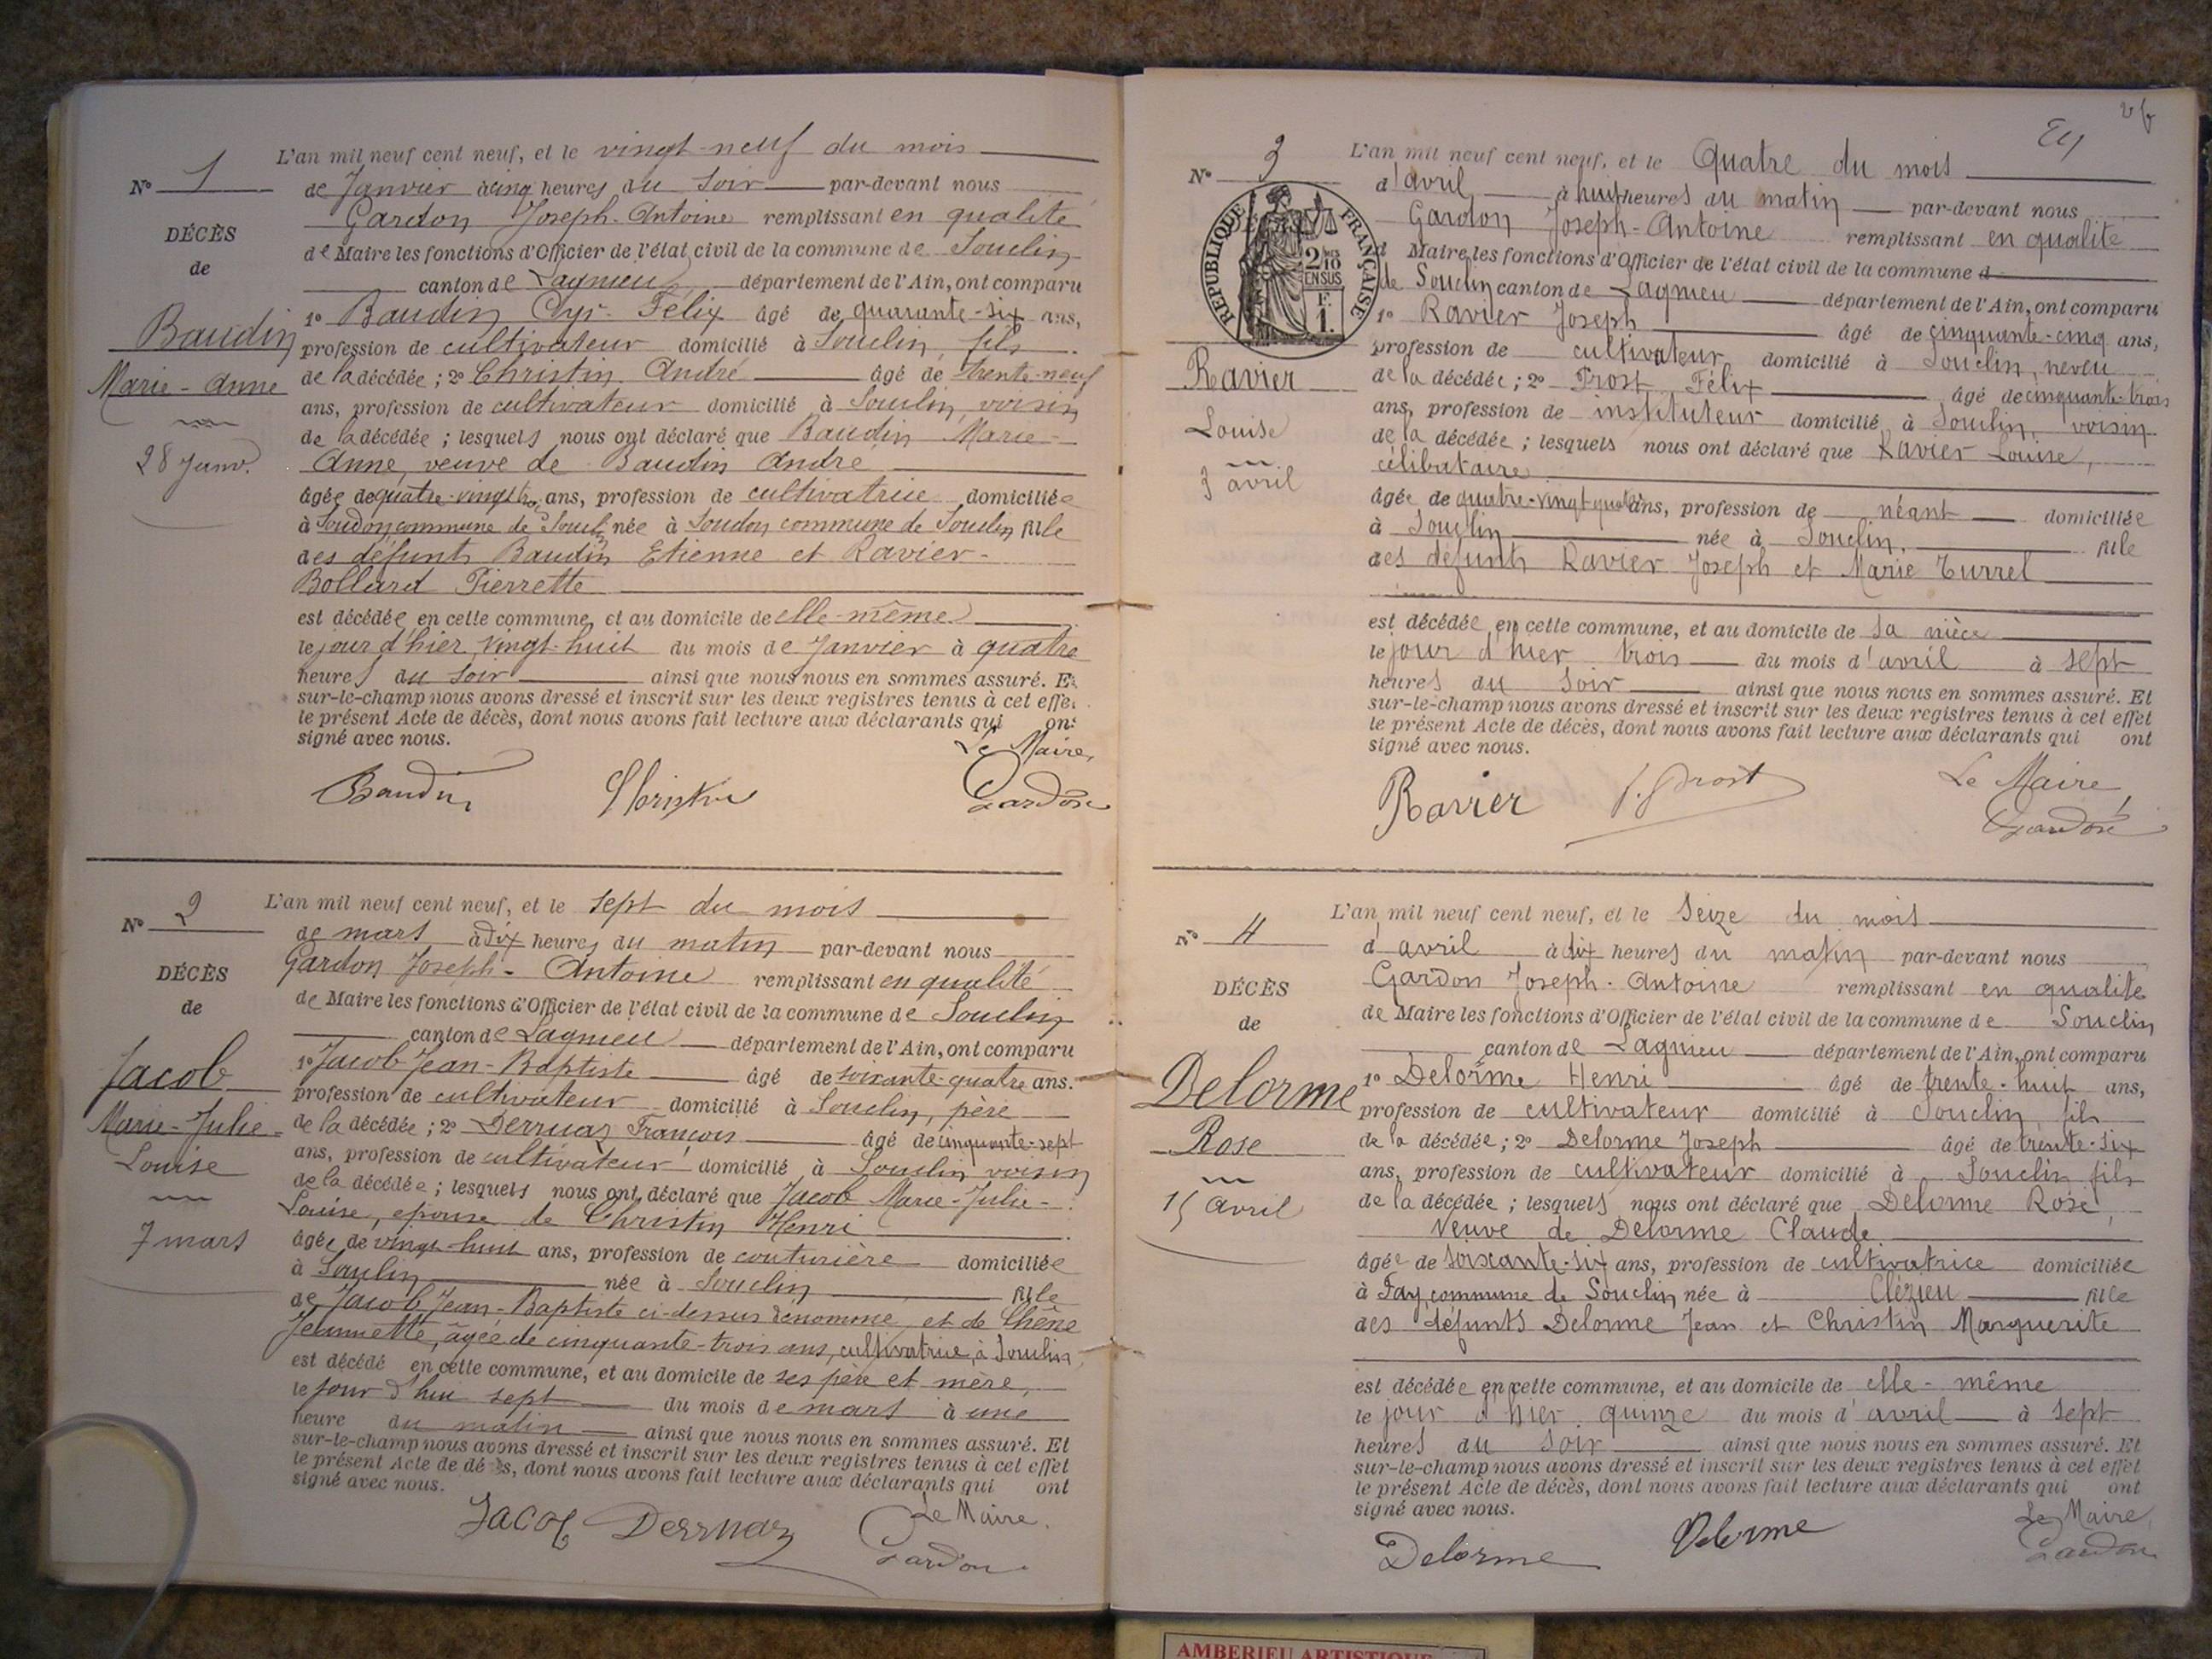 L'an mil neuf cent neuf, et le vingt-neuf du mois
N° 1
de Janvier à cinq heures du soir par-devant nous
Gardon Joseph-Antoine remplissant en qualité
DÉCÈS
de Maire les fonctions d'Officier de l'état civil de la commune de Souclin
de
canton de Lagnieu département de l'Ain, ont comparu
1° Baudin Cyr-Félix âgé de quarante-six ans,
Baudin
profession de cultivateur domicilié à Souclin, fils
Marie-Anne
de la décédée; 2° Christin André âgé de trente-neuf
ans, profession de cultivateur domicilié à Souclin, voisin
de la décédée; lesquels nous ont déclaré que Baudin Marie-
28 Janv.
Anne, veuve de Baudin André
âgée de quatre-vingt ans, profession de cultivatrice domiciliée
à Soudon, commune de Souclin née à Soudon commune de Souclin fille
des défunts Baudin Etienne et Ravier-
Bollard Pierrette
est décédée en cette commune, et au domicile de elle-même
le jour d'hier, vingt-huit du mois de Janvier à quatre
heures du soir ainsi que nous nous en sommes assuré. Et
sur-le-champ nous avons dressé et inscrit sur les deux registres tenus à cet effet
le présent Acte de décès, dont nous avons fait lecture aux déclarants qui ont
signé avec nous.
Le Maire,
Baudin Christin Gardon
L'an mil neuf cent neuf, et le sept du mois
N° 2
de mars à dix heures du matin par-devant nous
Gardon Joseph-Antoine remplissant en qualité
DÉCÈS
de Maire les fonctions d'Officier de l'état civil de la commune de Souclin
de
canton de Lagnieu département de l'Ain, ont comparu
1° Jacob Jean-Baptiste âgé de soixante-quatre ans.
Jacob
profession de cultivateur domicilié à Souclin, père
Marie-Julie-
de la décédée; 2° Derruaz François âgé de cinquante-sept
Louise
ans, profession de cultivateur domicilié à Souclin voisin
de la décédée; lesquels nous ont déclaré que Jacob Marie-Julie-
Louise, epouse de Christin Henri
7 mars
âgée de vingt-huit ans, profession de couturière domiciliée
à Souclin née à Souclin fille
de Jacob Jean-Baptiste ci-dessus dénommé, et de Chêne
Jeannette, âgée de cinquante-trois ans, cultivatrice, à Souclin
est décédé en cette commune, et au domicile de ses père et mère,
le jour d'hui sept du mois de mars à une
heure du matin ainsi que nous nous en sommes assuré. Et
sur-le-champ nous avons dressé et inscrit sur les deux registres tenus à cet effet
le présent Acte de décès, dont nous avons fait lecture aux déclarants qui ont
signé avec nous.
Le Maire.
Jacob Derruaz Gardon
L'an mil neuf cent neuf, et le Quatre du mois
N° 3
d'avril à huit heures du matin par-devant nous
Gardon Joseph-Antoine remplissant en qualité
d Maire les fonctions d'Officier de l'état civil de la commune d
RÉPUBLIQUE FRANÇAISE
2/10 EN SUS
F. 1.
de Souclin canton de Lagnieu département de l'Ain, ont comparu
1° Ravier Joseph âgé de cinquante-cinq ans,
profession de cultivateur domicilié à Souclin, neveu
Ravier
de la décédée; 2° Prost Félix âgé de cinquante-trois
ans, profession de instituteur domicilié à Souclin, voisin
Louise
de la décédée; lesquels nous ont déclaré que Ravier Louise,
célibataire
3 avril
âgée de quatre-vingt-quatre ans, profession de néant domiciliée
à Souclin née à Souclin, fille
des défunts Ravier Joseph et Marie Turrel
est décédée en cette commune, et au domicile de sa nièce
le jour d'hier trois du mois d'avril à sept
heures du soir ainsi que nous nous en sommes assuré. Et
sur-le-champ nous avons dressé et inscrit sur les deux registres tenus à cet effet
le présent Acte de décès, dont nous avons fait lecture aux déclarants qui ont
signé avec nous.
Le Maire,
Ravier F. Prost Gardon
L'an mil neuf cent neuf, et le seize du mois
N° 4
d'avril à dix heures du matin par-devant nous
Gardon Joseph-Antoine remplissant en qualité
DÉCÈS
de Maire les fonctions d'Officier de l'état civil de la commune de Souclin
de
canton de Lagnieu département de l'Ain, ont comparu
1° Delorme Henri âgé de trente-huit ans,
Delorme
profession de cultivateur domicilié à Souclin, fils
Rose
de la décédée; 2° Delorme Joseph âgé de trente-six
ans, profession de cultivateur domicilié à Souclin fils
15 Avril
de la décédée; lesquels nous ont déclaré que Delorme Rose,
Veuve de Delorme Claude
âgée de soixante-six ans, profession de cultivatrice domiciliée
à Fay, commune de Souclin née à Clézieu fille
des défunts Delorme Jean et Christin Marguerite
est décédée en cette commune, et au domicile de elle-même
le jour d'hier quinze du mois d'avril à sept
heures du soir ainsi que nous nous en sommes assuré. Et
sur-le-champ nous avons dressé et inscrit sur les deux registres tenus à cet effet
le présent Acte de décès, dont nous avons fait lecture aux déclarants qui ont
signé avec nous.
Le Maire,
Delorme Delorme Gardon
AMBERIEU ARTISTIQUE